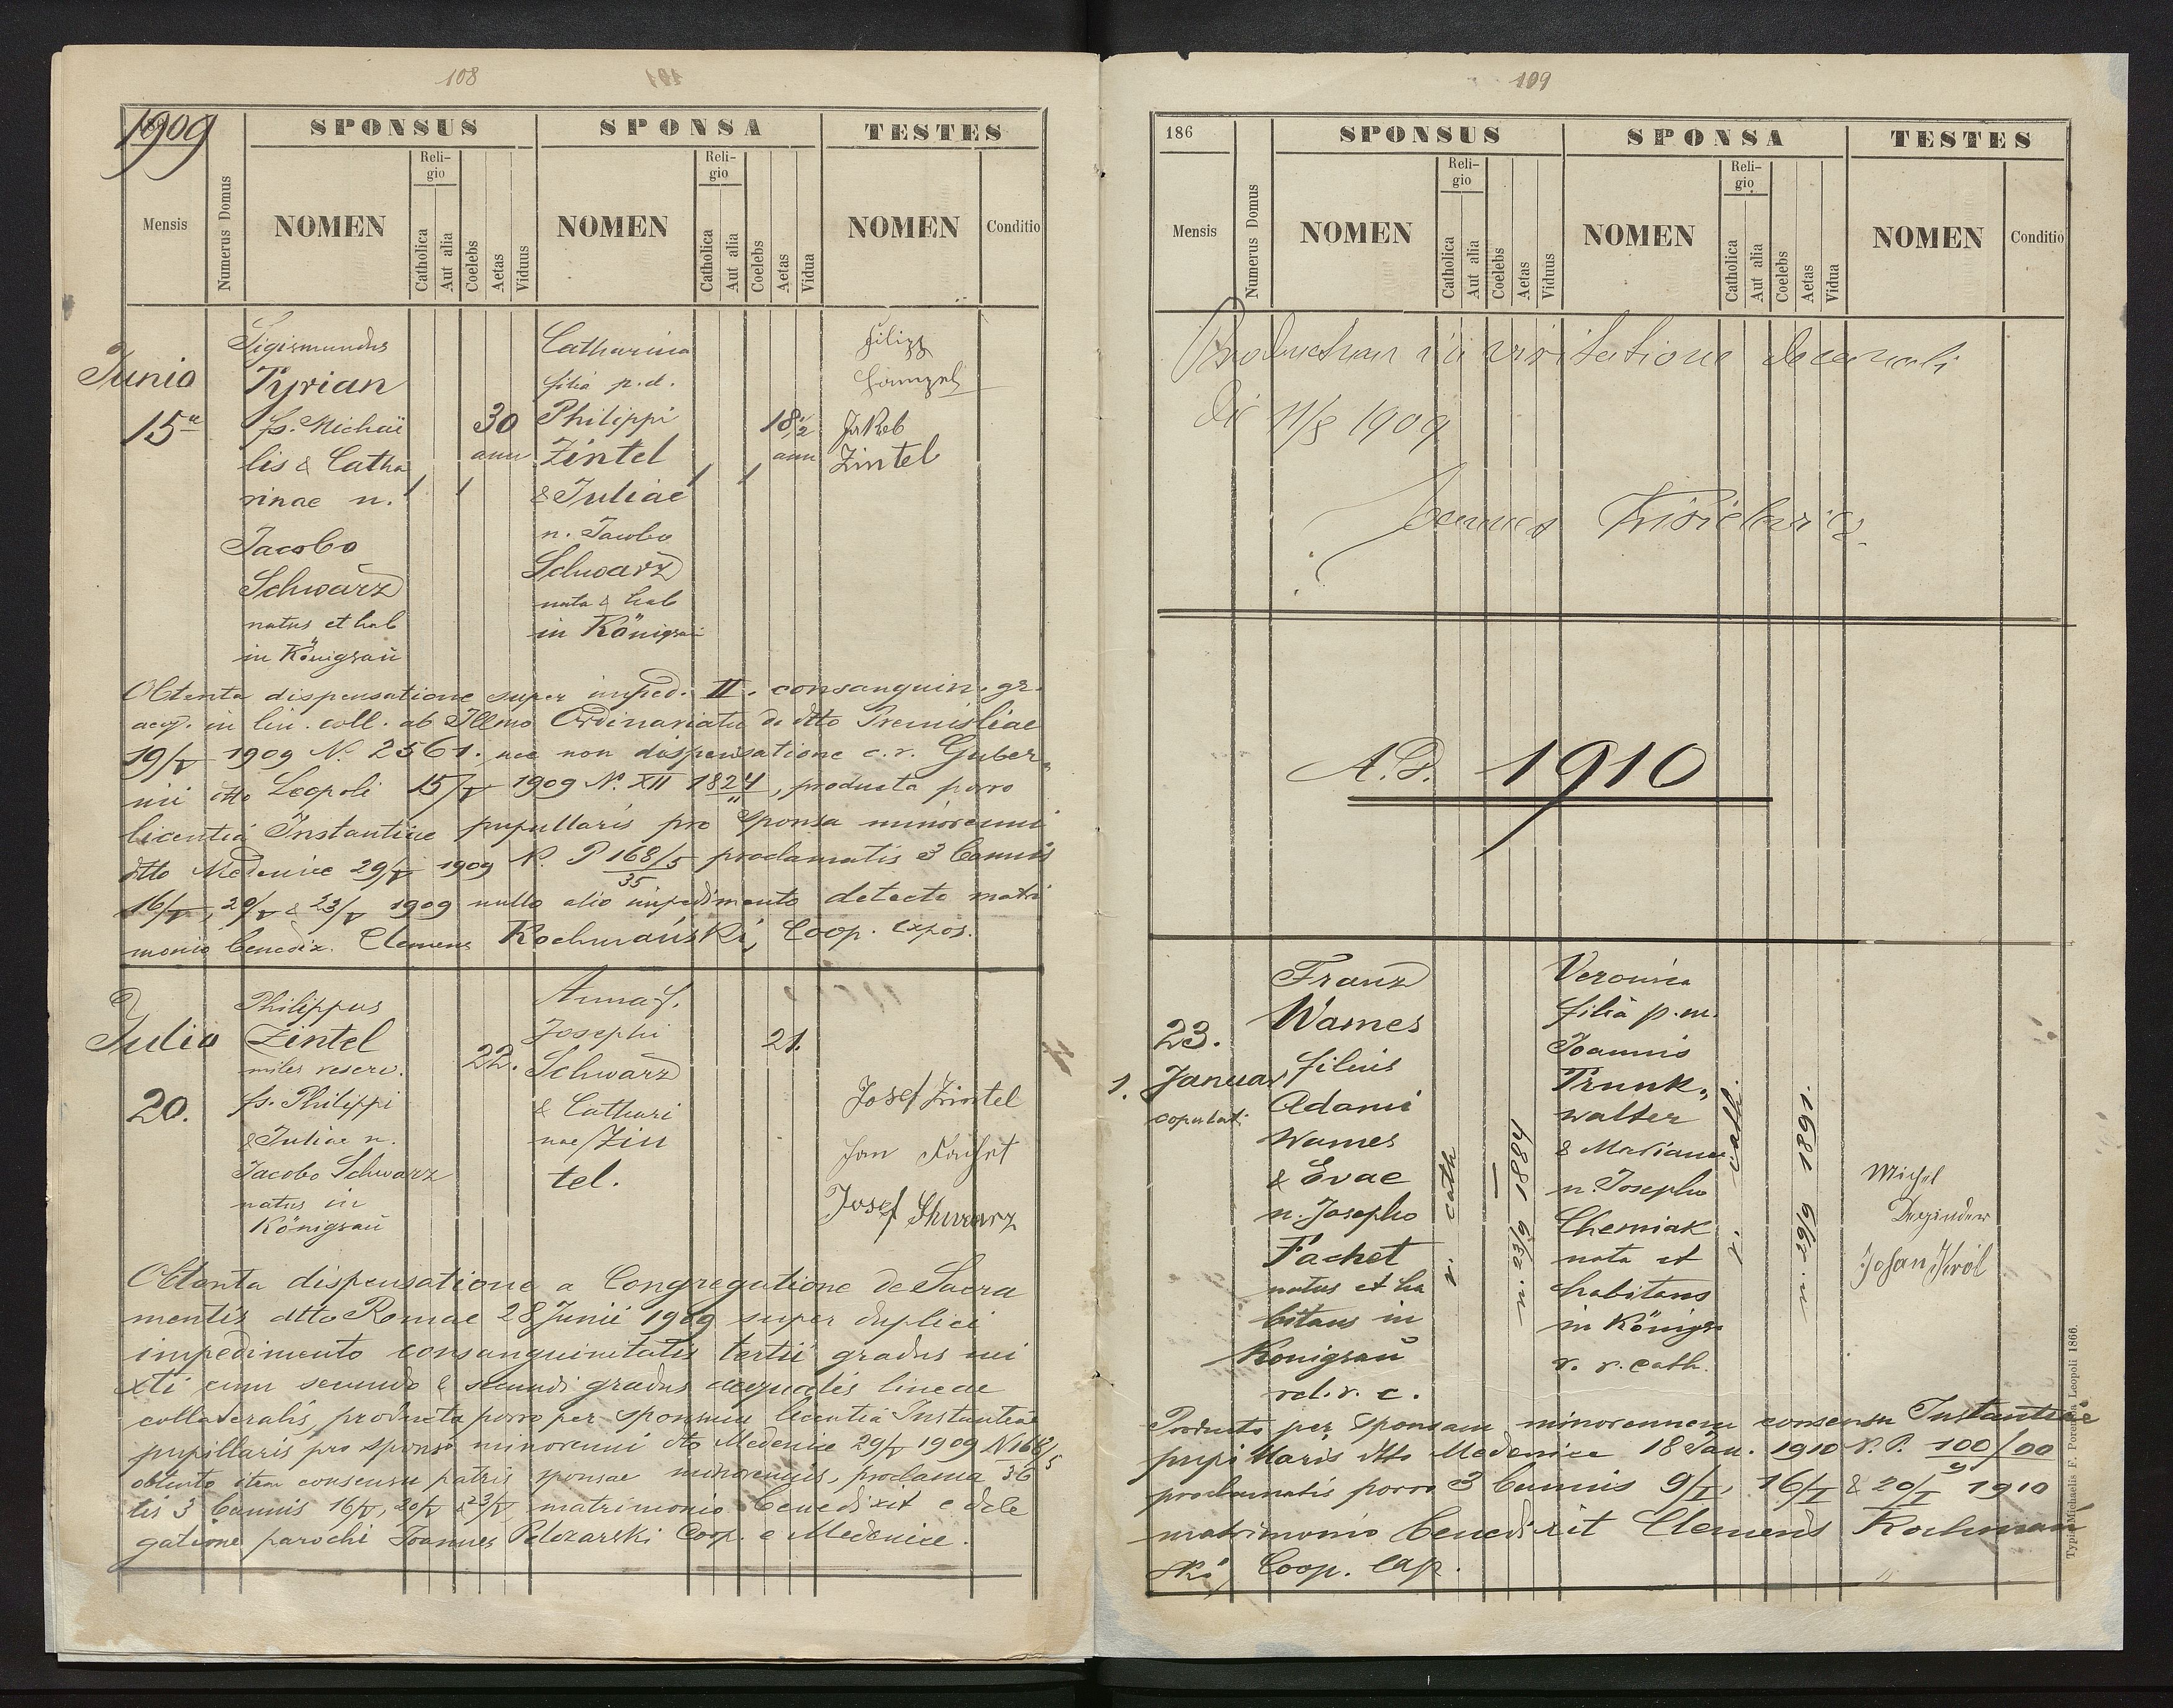 108
1909
SPONSUS
SPONSA
TESTES
Mensis
Numerus Domus
NOMEN
Reli-
gio
Catholica
Aut alia
Coelebs
Aetas
Viduus
NOMEN
Reli-
gio
Catholica
Aut alia
Coelebs
Aetas
Vidua
NOMEN
Conditio
Junio
15
Sigismundus
Tyrian
fs. Michaë
lis & Catha
rinae n.
Jacobo
Schwarz
natus et hab
in Königsau
30
ann
Catharina
filia p. d.
Philippi
Zintel
& Juliae
n. Jacobo
Schwarz
nata & hab
in Königsau
18 1/2
ann
Filipp
Jakob
Zintel
Obtenta dispensatione super imped. II. consanguin. gr.
aeq. in lin. coll. ab Illmo Ordinariatu de dtto Premisliae
19/V 1909 N. 2561. nec non dispensatione c. r. Guber-
nii dtto Leopoli 15/V 1909 N. XII 1824, producta porro
licentia Instantiae pupillaris pro sponsa minorenni
dtto Medenice 29/V 1909 N. P 168/5 proclamatis 3 bannis
35
16/V, 20/V & 23/V 1909 nullo alio impedimento detecto matri
monio benedix. Clemens Rochmański, Coop. expos.
Julio
20.
Philippus
Zintel
miles reserv.
fs. Philippi
& Juliae n.
Jacobo Schwarz
natus in
Königsau
22.
Anna f.
Josephi
Schwarz
& Cathari
nae Zin
tel.
21.
Josef Zintel
Jan
Josef Shwarz
Obtenta dispensatione a Congregatione de Sacra
mentis dtto Romae 28 Junii 1909 super duplici
impedimento consanguinitatis tertii gradus mi
xti cum secundo & secundi gradus aequalis lineae
collateralis, producta porro per sponsum licentia Instantiae
pupillaris pro sponso minorenni dto Medenice 29/V 1909 N 168/5
36
obtento item consensu patris sponsae minorennis, proclama
tis 3 bannis 16/V, 20/V & 23/V, matrimonio benedixit e dele
gatione parochi Joannes Pelczarski Coop. e Medenice.
109
186
SPONSUS
SPONSA
TESTES
Mensis
Numerus Domus
NOMEN
Reli-
gio
Catholica
Aut alia
Coelebs
Aetas
Viduus
NOMEN
Reli-
gio
Catholica
Aut alia
Coelebs
Aetas
Vidua
NOMEN
Conditio
Productum in visitatione decanali
die 11/8 1909
Joannes
A. D. 1910
1.
23.
Januar
copulat.
Franz
Wames
filius
Adami
Wames
& Evae
n. Josepho
Fachet
natus et ha
bitans in
Konigsau
rel. r. c.
r. cath
n. 23/9 1884
Veronica
filia p. m.
Joannis
Trunk-
walter
& Marianna
n. Josepho
Cherniak
nata et
habitans
in Königs
r. r. cath.
r. cath.
n. 29/9 1891.
Michel
Johan Król
Producto per sponsam minorennem consensu Instantiae
pupillaris dtto Medenice 18 Jan. 1910 N. P. 100/00
9
proclamatis porro 3 bannis 9/I, 16/I & 20/I 1910
matrimonio benedixit Clemens Rochmań
ski, Coop. exp.
Typis Michaelis F. Poremba Leopoli 1866.